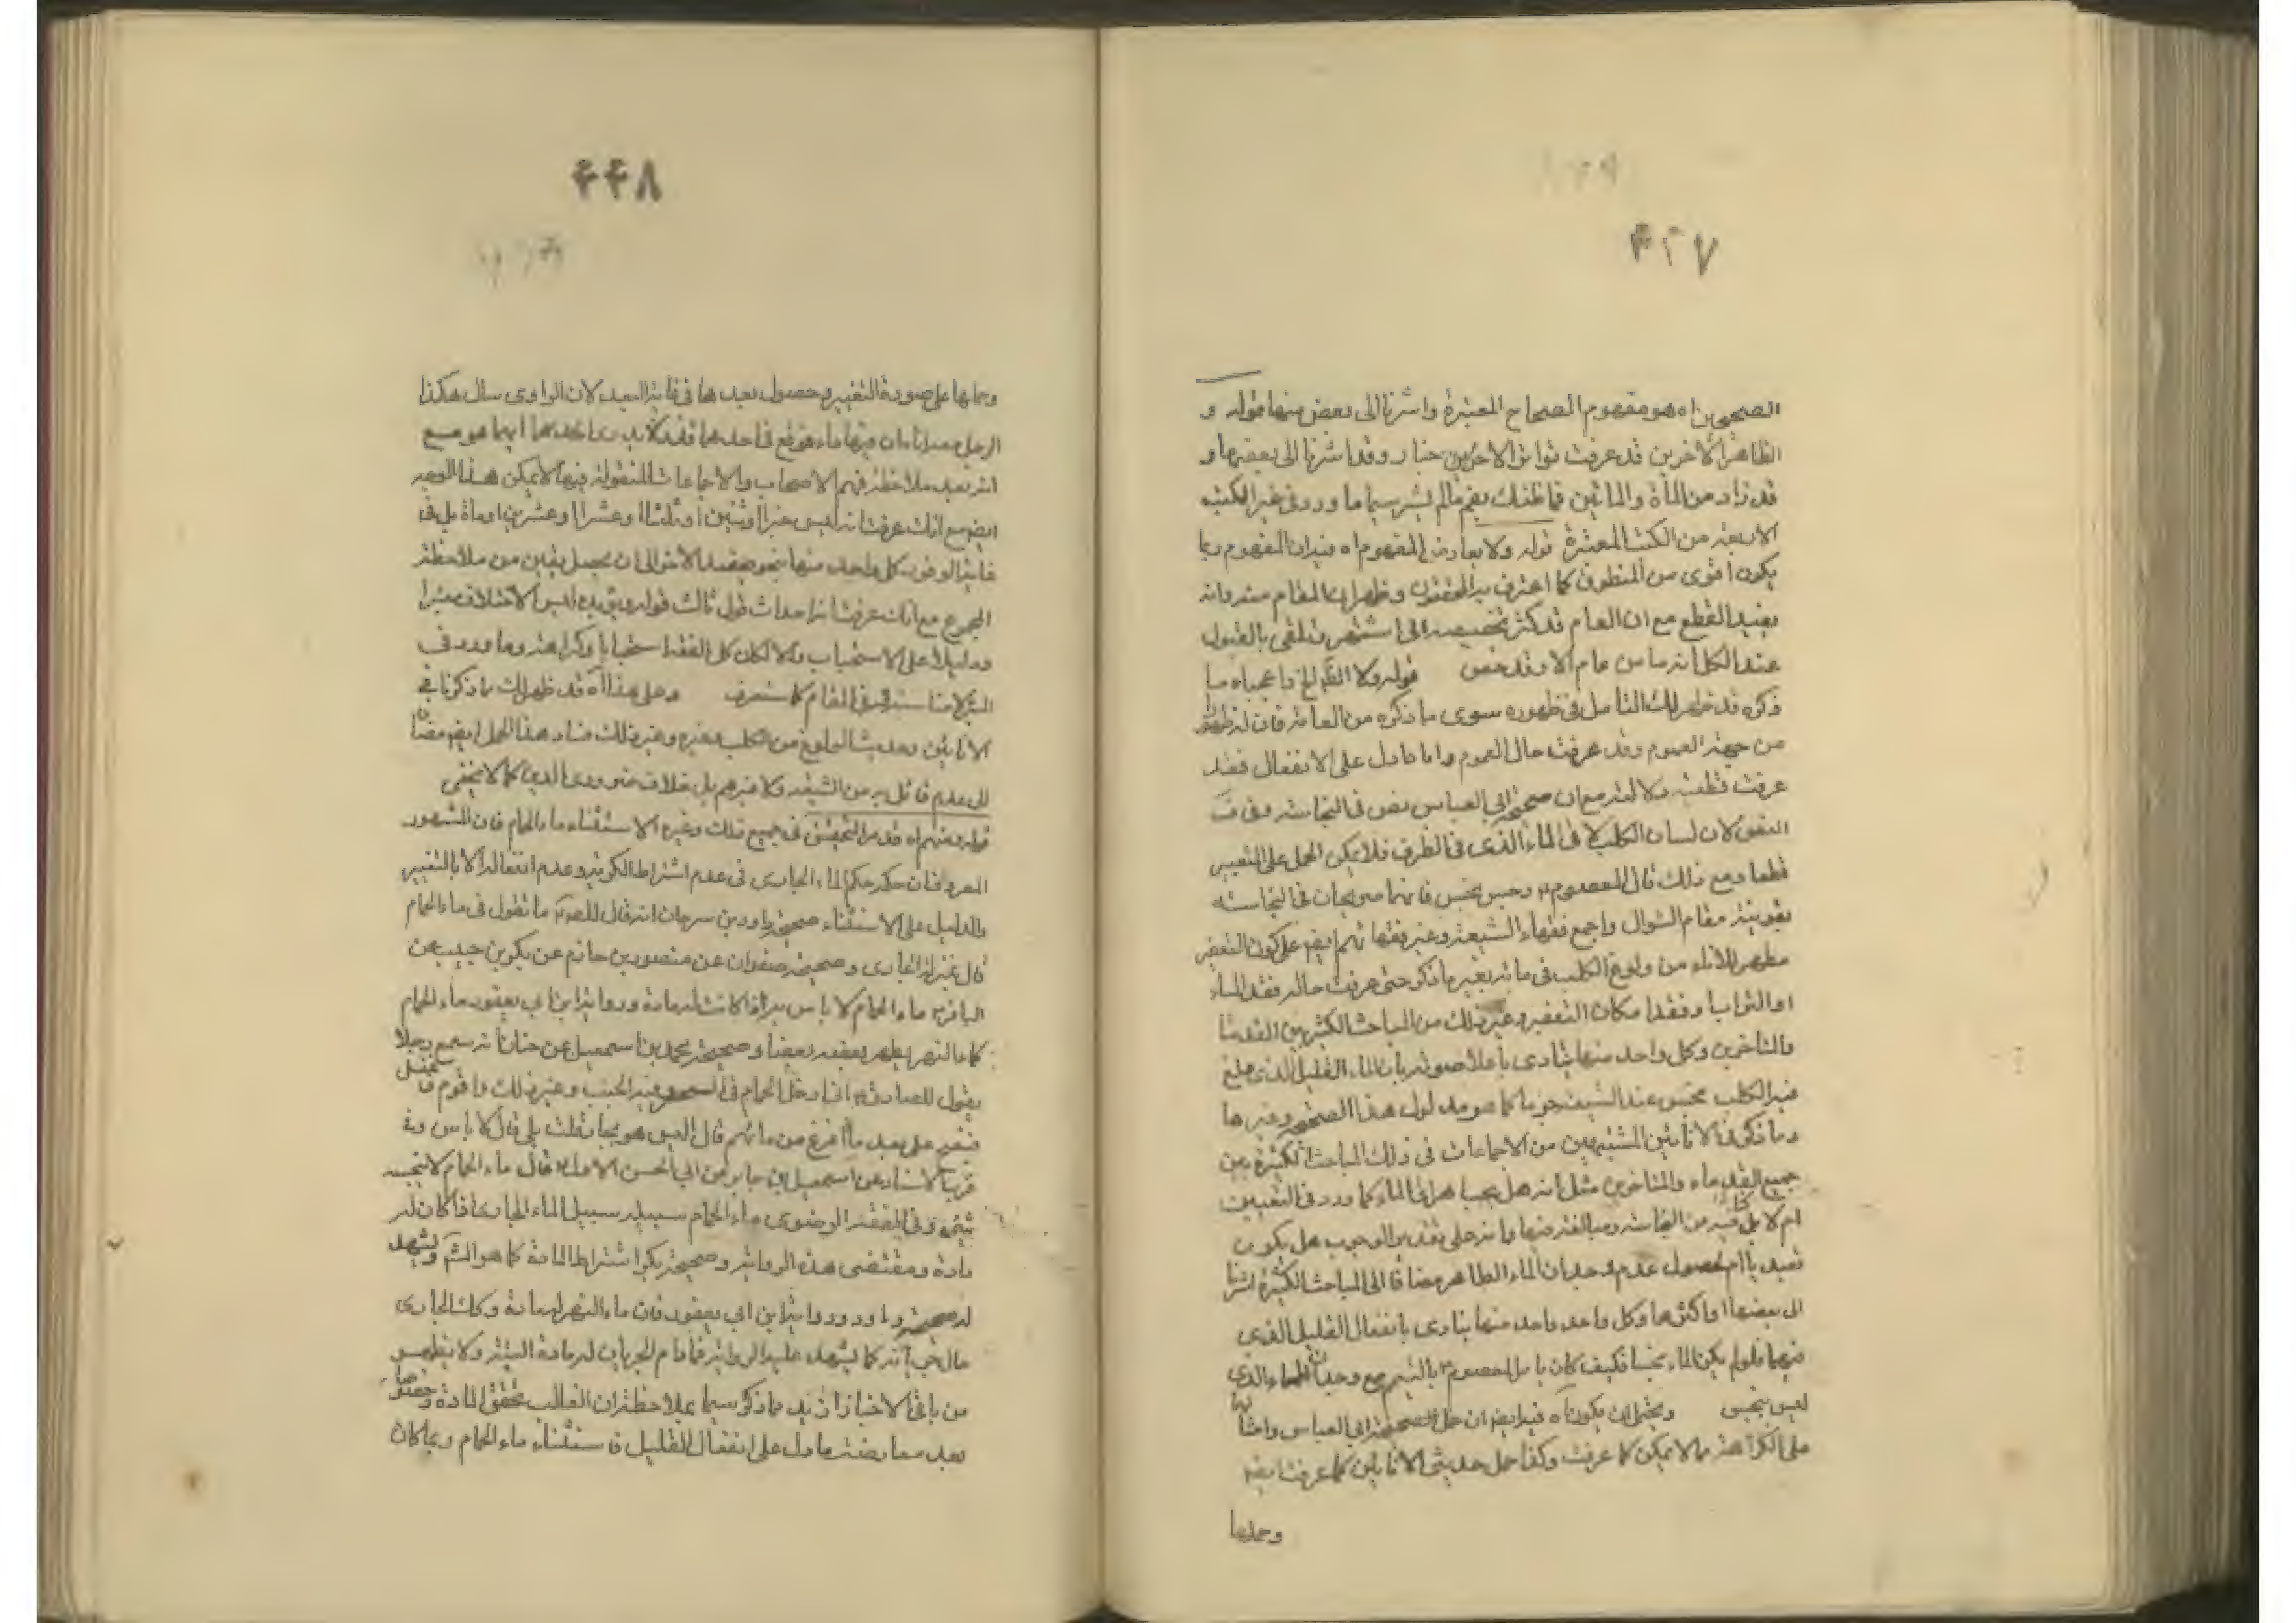 ۴۲۷
الصحيحين اه هو مفهوم الصحاح المعتبرة واشرنا الى بعض منها قوله و
الظاهر الاخرين قد عرفت تواتر الاخرين وقد اشرنا الى بعضها و
قد زاد من المأة والمائتين فما ظنك بغير مالم نشر سيما ما ورد فى غير الكتب
الاربعة من الكتب المعتبرة قوله ولا يعارض المفهوم اه فيه ان المفهوم ربما
يكون اقوى من المنطوق كما اعترف به المحققون وظهر ان المقام منه وانه
يفيد القطع مع ان العام قد كثر تخصيصه الى ان اشتهر وتلقى بالقبول
عند الكل انه ما من عام الا وقد خص قوله ولا
ذكره قد ظهر لك التأمل فى ظهوره سوى ما ذكره من العامة فان له ظهورا
من جهة العموم وقد عرفت حال العموم واما ما دل على الانفعال فقد
عرفت قطعية دلالته مع ان صحيحة ابى العباس نص فى النجاسة وفى
النص لان لسان الكلب لا فى الماء الذى فى الظرف فلا يمكن الحمل على التغيير
قطعا ومع ذلك قال المعصوم رجس نجس فانهما صريحان فى النجاسة
بقرينة مقام السؤال واجمع فقهاء الشيعة وغير فقهائهم ايضا على كون التعفير
مطهر للاناء من ولوغ الكلب فى مائه بغير ما ذكر حتى عرفت حاله فقد الماء
او التراب او فقد امكان التعفير وغير ذلك من المباحث الكثيرة من القدماء
والمتاخرين وكل واحد منها ينادى باعلا صوته بان الماء القليل الذى ولغ
فيه الكلب نجس عند الشيعة جزما كما هو مدلول هذا الصحيح وغيرها
وما ذكر فى الانائين المشتبهين من الاجماعات فى ذلك المباحث الكثيرة من
جميع القدماء والمتاخرين مثل انه هل يجب اهراق الماء كما ورد فى النصين
ام لا بل كناية من النجاسة ومبالغة منها وانه على تقدير الوجوب هل يكون
تعبديا ام لحصول عدم وجدان الماء الطاهر مضافا الى المباحث الكثيرة اشرنا
الى بعضها او اكثرها وكل واحد واحد منها ينادى بانفعال القليل الذى
فيهما فلو لم يكن الماء نجسا فكيف كان يامر المعصوم بالتيمم مع وجدان الماء الذى
ليس بنجس ويحتمل ان يكون اه فيه ايضا ان حمل الصحيحة ابى العباس وامثالها
على الكراهة مما لا يمكن كما عرفت وكذا حمل حديثى الانائين كما عرفت ايضا
وحملها
۴۲۸
وحملها على صورة التغيير وحصول بعدها فى غاية البعد لان الراوى سال هكذا
الرجل معه اناءان فيهما ماء فوقع فى احدهما قذر لا يدرى ايهما هو مع
انه بعد ملاحظة فهم الاصحاب والاجماعات المنقولة فيها لا يمكن هذا التوجيه
ايضا مع انك عرفت انه ليس خبرا او اثنين او ثلثا او عشرا او عشرين او مأة بل فى
غاية الوفور كل واحد منها نحو ضد الاخر الى ان يحصل يقين من ملاحظة
المجموع مع انك عرفت انه احداث قول ثالث قوله ويؤيده ليس الاختلاف معتبرا
ودليلا على الاستحباب والا لكان كل الفقه استحبابا وكراهة وما ورد فى
البئر لامناسبة فى المقام كما ستعرف وعلى هذا اه قد ظهر لك ما ذكرنا فى
الانائين وحديث الولوغ من الكلب وغيره وغير ذلك فساد هذا الحمل ايضا مضافا
الى عدم قائل به من الشيعة ولا غيرهم بل خلاف ضرورى الدين كما لا يخفى
قوله ومنهم اه قد مر التحقيق فى جميع ذلك وغيره الا استثناء ماء الحمام فان المشهور
المعروف ان حكمه حكم الماء الجارى فى عدم اشتراط الكرية وعدم انفعاله الا بالتغيير
والدليل على الاستثناء صحيحة داود بن سرحان انه قال للص ما تقول فى ماء الحمام
قال بمنزلة الجارى وصحيحة صفوان عن منصور بن حازم عن بكر بن حبيب عن
الباقر ماء الحمام لا باس به اذا كانت له مادة ورواية ابن ابى يعفور ماء الحمام
كماء النهر يطهر بعضه بعضا وصحيحة محمد بن اسمعيل عن حنان انه سمع رجلا
يقول للصادق انى ادخل الحمام فى السحر وفيه الجنب وغير ذلك واقوم فاغتسل
فينضح على بعد ما افرغ من مائهم قال اليس هو بجار قلت بلى قال لا باس وفى
قرب الاسناد عن اسمعيل بن جابر عن ابى الحسن الاول قال ماء الحمام لا ينجسه
شئ وفى الفقه الرضوى ماء الحمام سبيله سبيل الماء الجارى اذا كان له
مادة ومقتضى هذه الرواية وصحيحة بكر اشتراط المادة كما هو ويشهد
له صحيحة داود ورواية ابن ابى يعفور فان ماء النهر له مادة وكذا الجارى
حال جريانه كما يشهد عليه الرواية فما دام الجريان له مادة البتة ولا يظهر
من باقى الاخبار ازيد مما ذكر سيما بملاحظة ان الغالب تحقق المادة وخصوصا
بعد معارضته ما دل على انفعال القليل فاستثناء ماء الحمام وبما كان